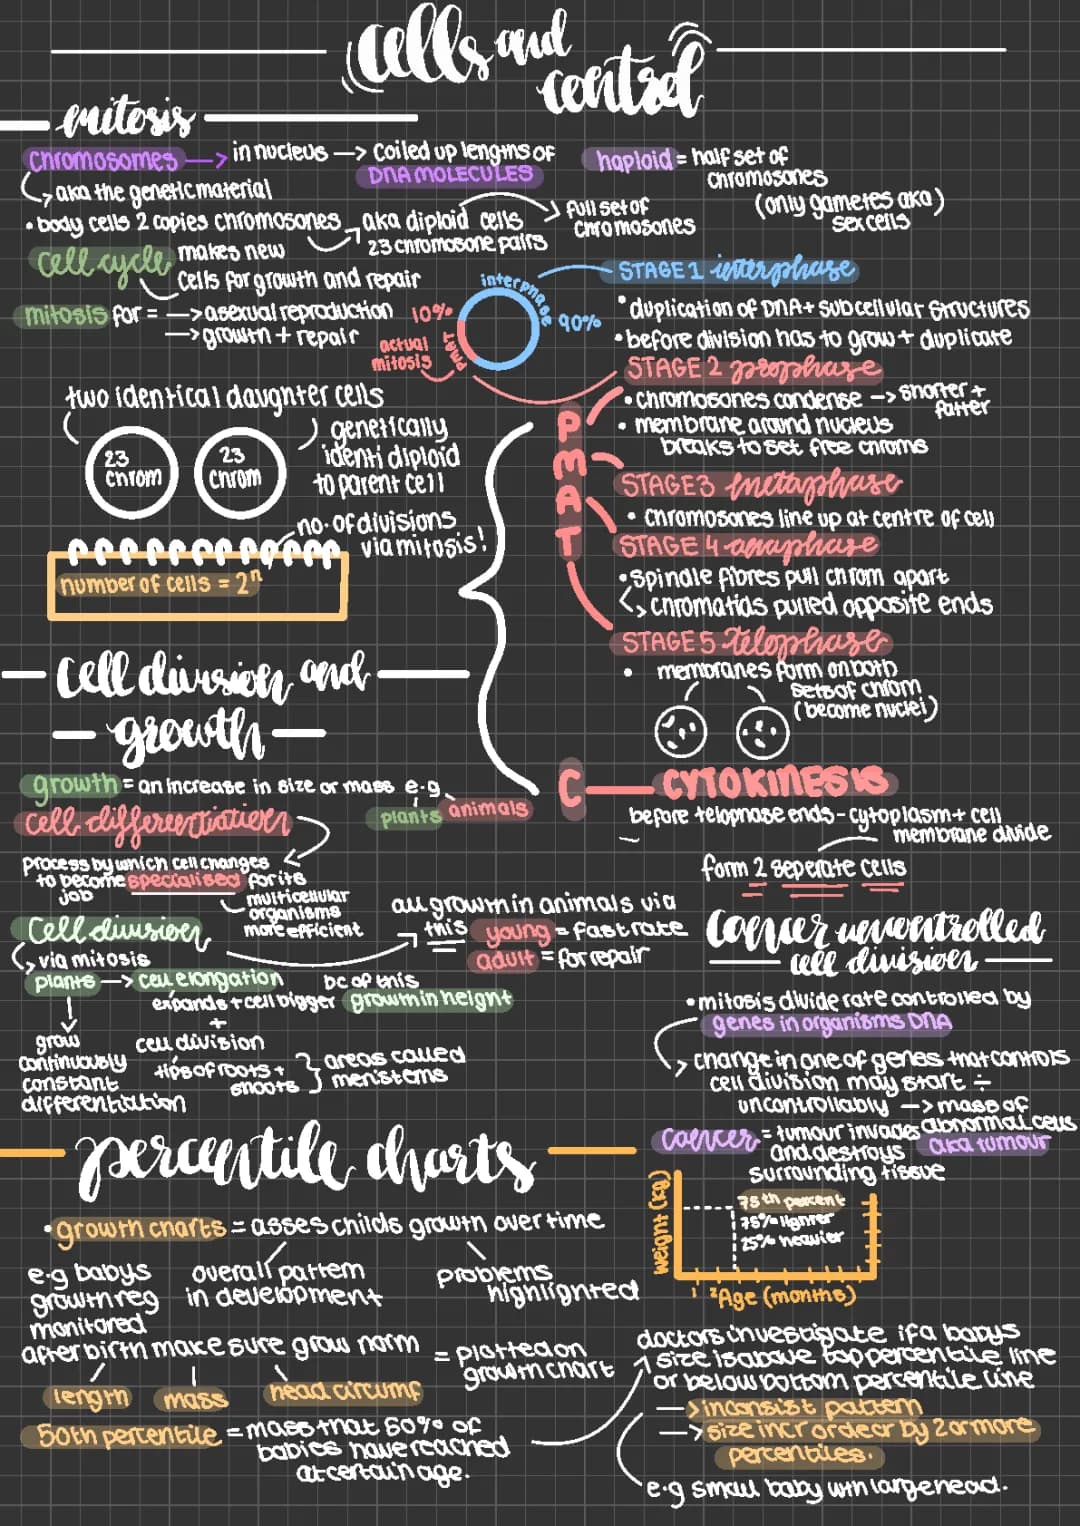 cells and
control
mitosis
chromosomes -> in nucleus -> coiled up lengths of
DNA MOLECULES
-> aka the genetic material
• body cells 2 copies chromosomes
aka diploid cells
23 chromosone pairs
-> full set of
chromosones
haploid = half set of
chromosones
(only gametes aka)
sex cells
cell cycle makes new
cells for growth and repair
mitosis for = -> asexual reproduction
-> growth + repair
interphase
90%
10%
actual
mitosis
PMAT
two identical daughter cells
23
chrom
23
chrom
genetically
identi diploid
to parent cell
no. of divisions
via mitosis!
number of cells = 2ⁿ
STAGE 1 interphase
• duplication of DNA + subcellular structures
• before division has to grow + duplicate
STAGE 2 prophase
• chromosones condense -> shorter +
fatter
• membrane around nucleus
breaks to set free chroms
P
M
A
T
STAGE 3 metaphase
• chromosones line up at centre of cell
STAGE 4 anaphase
• spindle fibres pull chrom apart
-> chromatids pulled opposite ends
STAGE 5 telophase
• membranes form on both
sets of chrom
(become nuclei)
C CYTOKINESIS
before telophase ends - cytoplasm + cell
membrane divide
form 2 seperate cells
cell division and
growth
growth = an increase in size or mass e.g
plants animals
cell differentiation
process by which cell changes
to become specialised for its
job
multicellular
organisms
more efficient
cell division
-> via mitosis
all growth in animals via
this young = fast rate
adult = for repair
plants -> cell elongation
expands + cell bigger
bc of this
growth in height
+
cell division
tips of roots +
shoots
} areas called
meristems
grow
continuously
constant
differentiation
cancer uncontrolled
cell division
• mitosis divide rate controlled by
genes in organisms DNA
-> change in one of genes that controls
cell division may start ÷
uncontrollably -> mass of
abnormal cells
aka tumour
cancer = tumour invades
and destroys
surrounding tissue
percentile charts
• growth charts = asses childs growth over time
e.g babys
growth reg
monitored
overall pattern
in development
problems
highlighted
after birth make sure grow norm
length
mass
head circumf
= plotted on
growth chart
50th percentile = mass that 50% of
babies have reached
at certain age.
weight (kg)
75th percent
75% lighter
25% heavier
1 2
Age (months)
doctors investigate if a babys
size is above top percentile line
or below bottom percentile line
-> inconsist pattern
-> size incr or decr by 2 or more
percentiles.
e.g small baby wth large head.